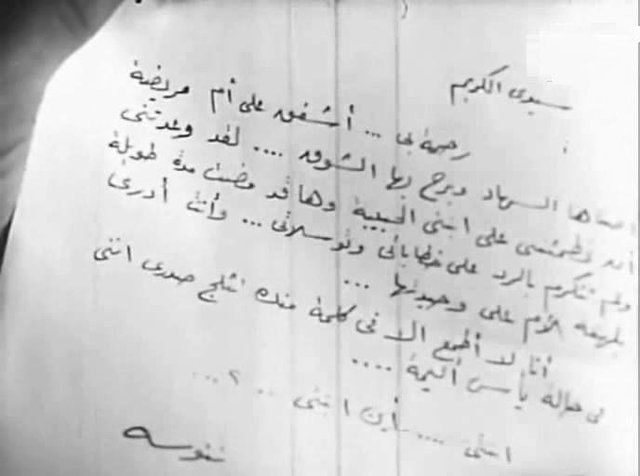 سيدى الكريم
رحمة بى ... أشفق على أم مريضة
أضناها السهاد وبرح بها الشوق .... لقد وعدتنى
أن تطمئننى على ابنتى الحبيبة وها قد مضت مدة طويلة
ولم تتكرم بالرد على خطاباتى وتوسلاتى ... وأنت أدرى
بلهفة الأم على وحيدتها ...
أنا لا أطمع إلا فى كلمة منك تثلج صدرى اننى
فى حالة يأس أليمة ....
ابنتى .... أين ابنتى .. ؟ ...